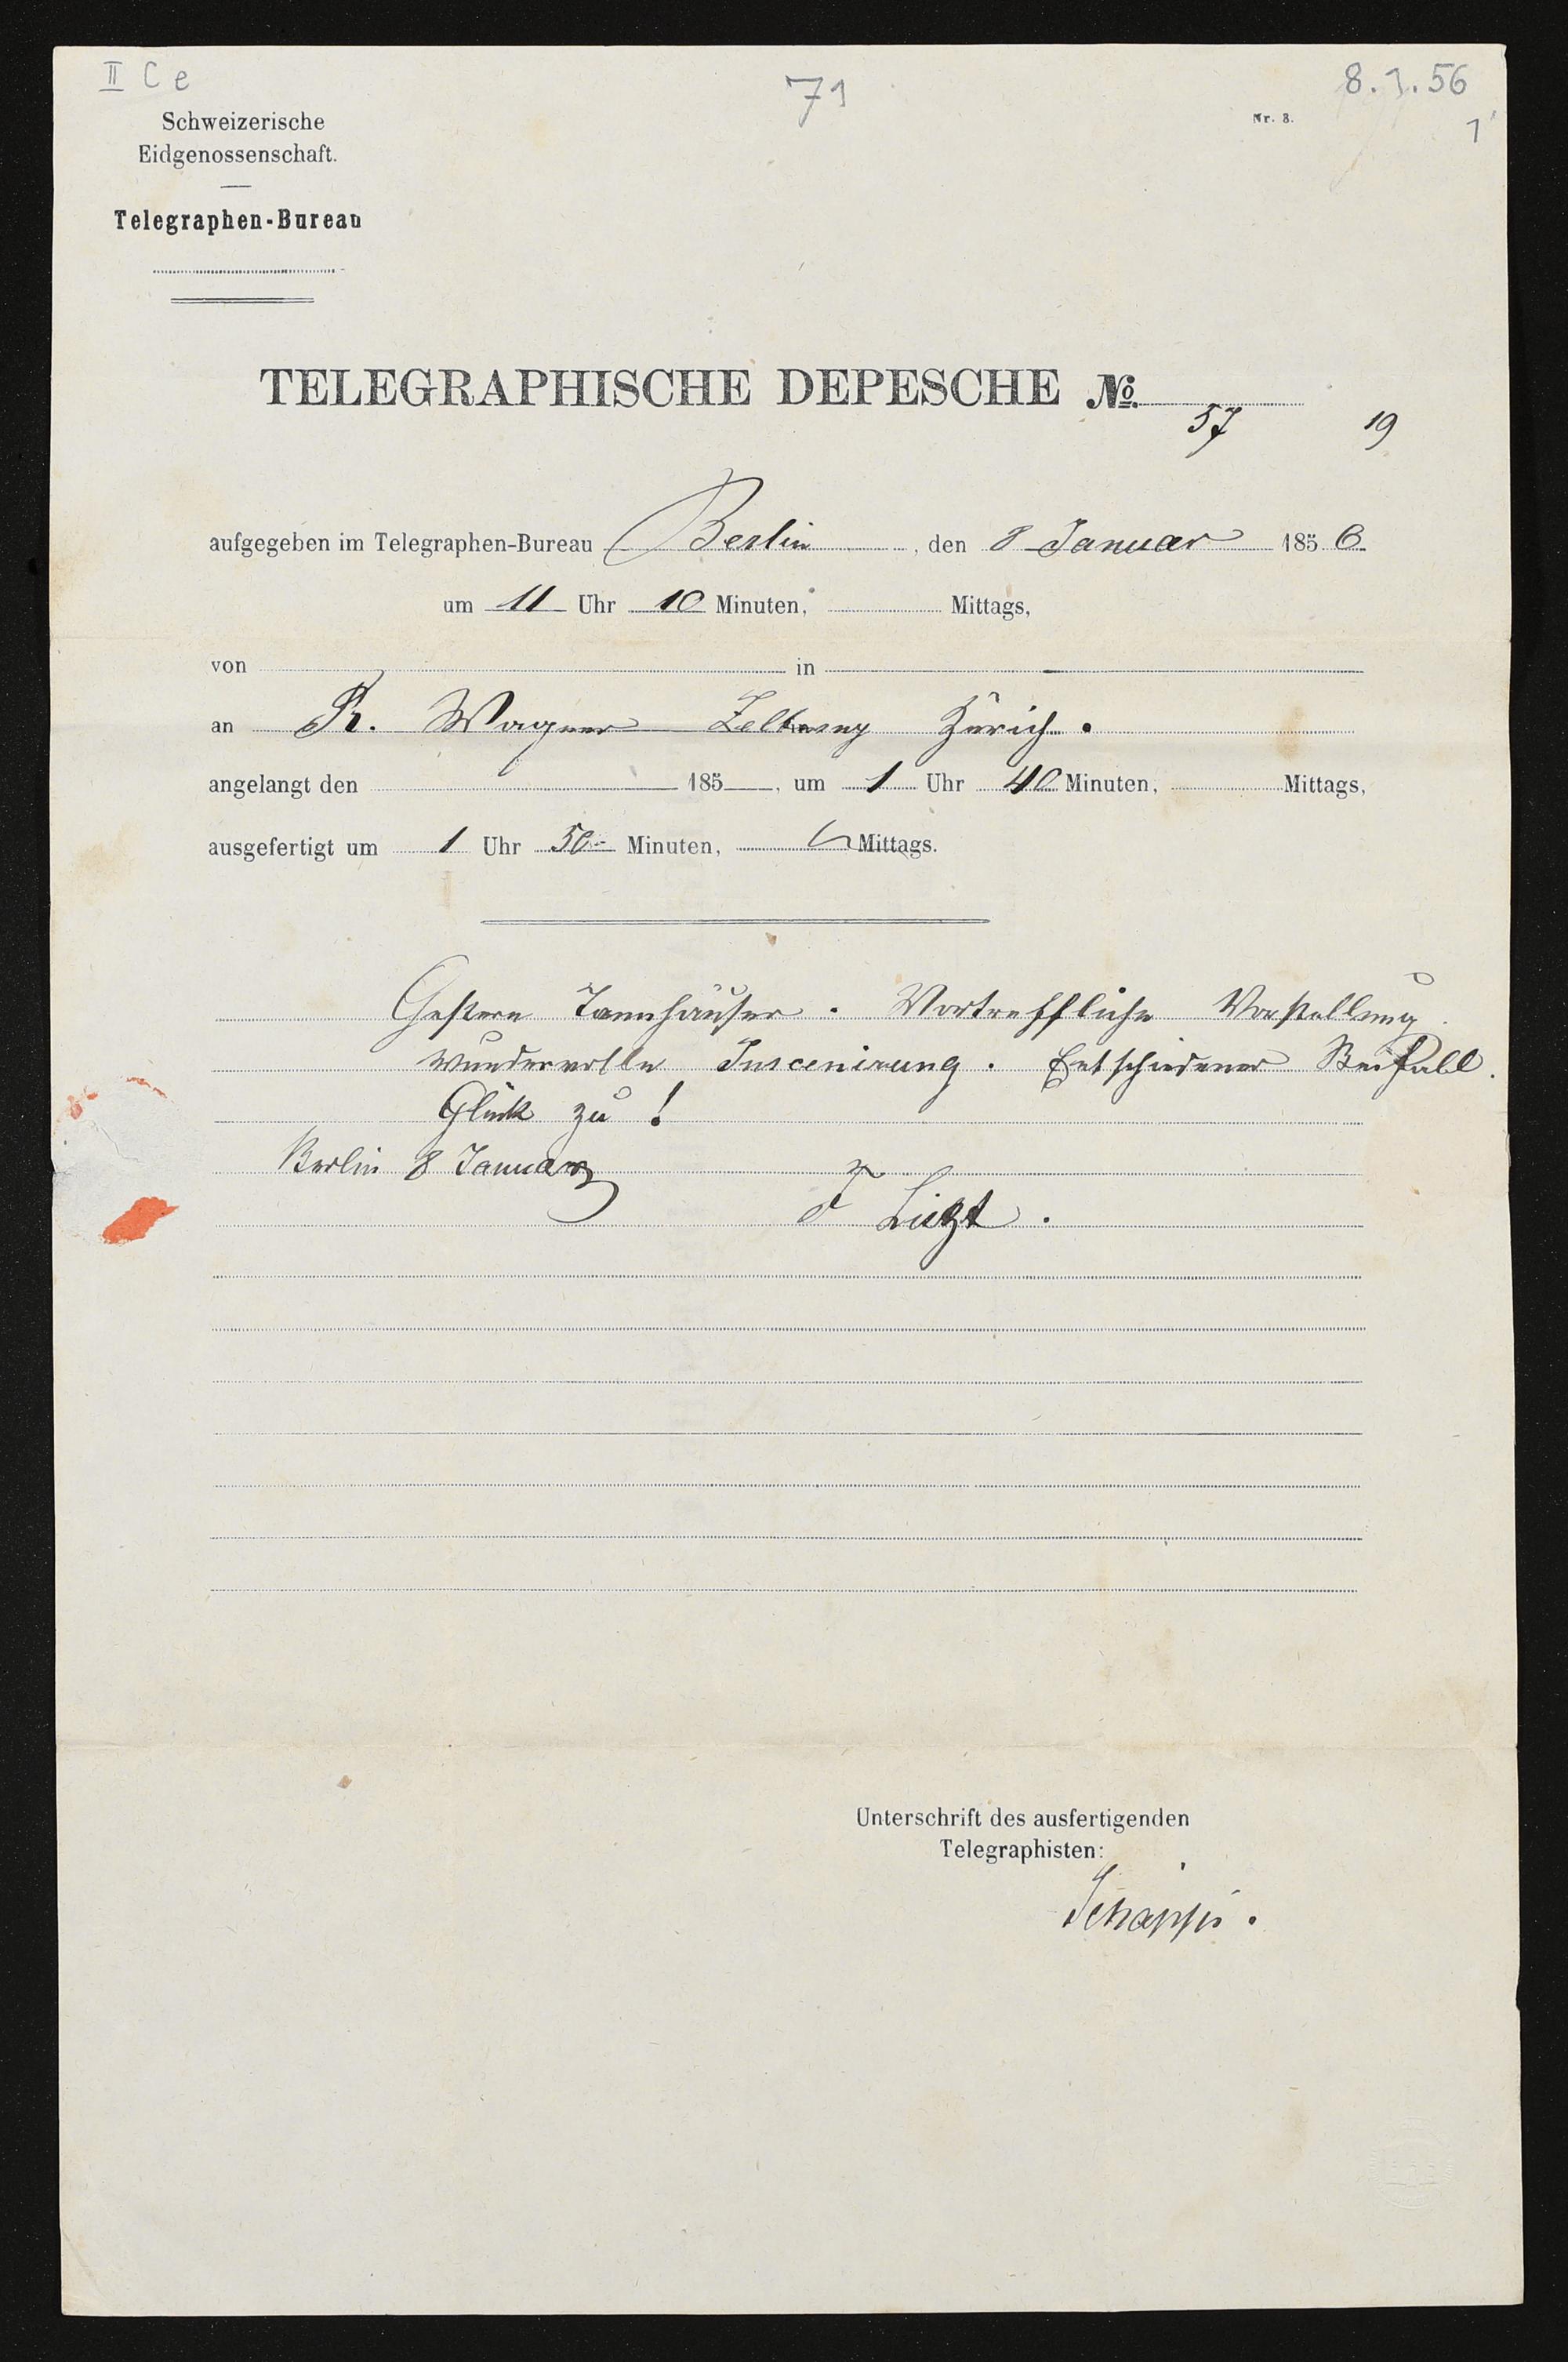 II C e
71
8.1.56
1
Nr. 8.
Schweizerische
Eidgenossenschaft.
Telegraphen-Bureau
TELEGRAPHISCHE DEPESCHE No.
57 19
aufgegeben im Telegraphen-Bureau Berlin, den 8 Januar 1856
um 11 Uhr 10 Minuten, Mittags,
von in
an R. Wagner Zeltweg Zürich.
angelangt den 185 , um 1 Uhr 40 Minuten, Mittags,
ausgefertigt um 1 Uhr 50 Minuten, Mittags.
Gestern Tannhäuser. Vortreffliche Vorstellung
wundervolle Inscenirung. Entschiedener Beifall.
Glück zu!
Berlin 8 Januar
F Liszt.
Unterschrift des ausfertigenden
Telegraphisten: